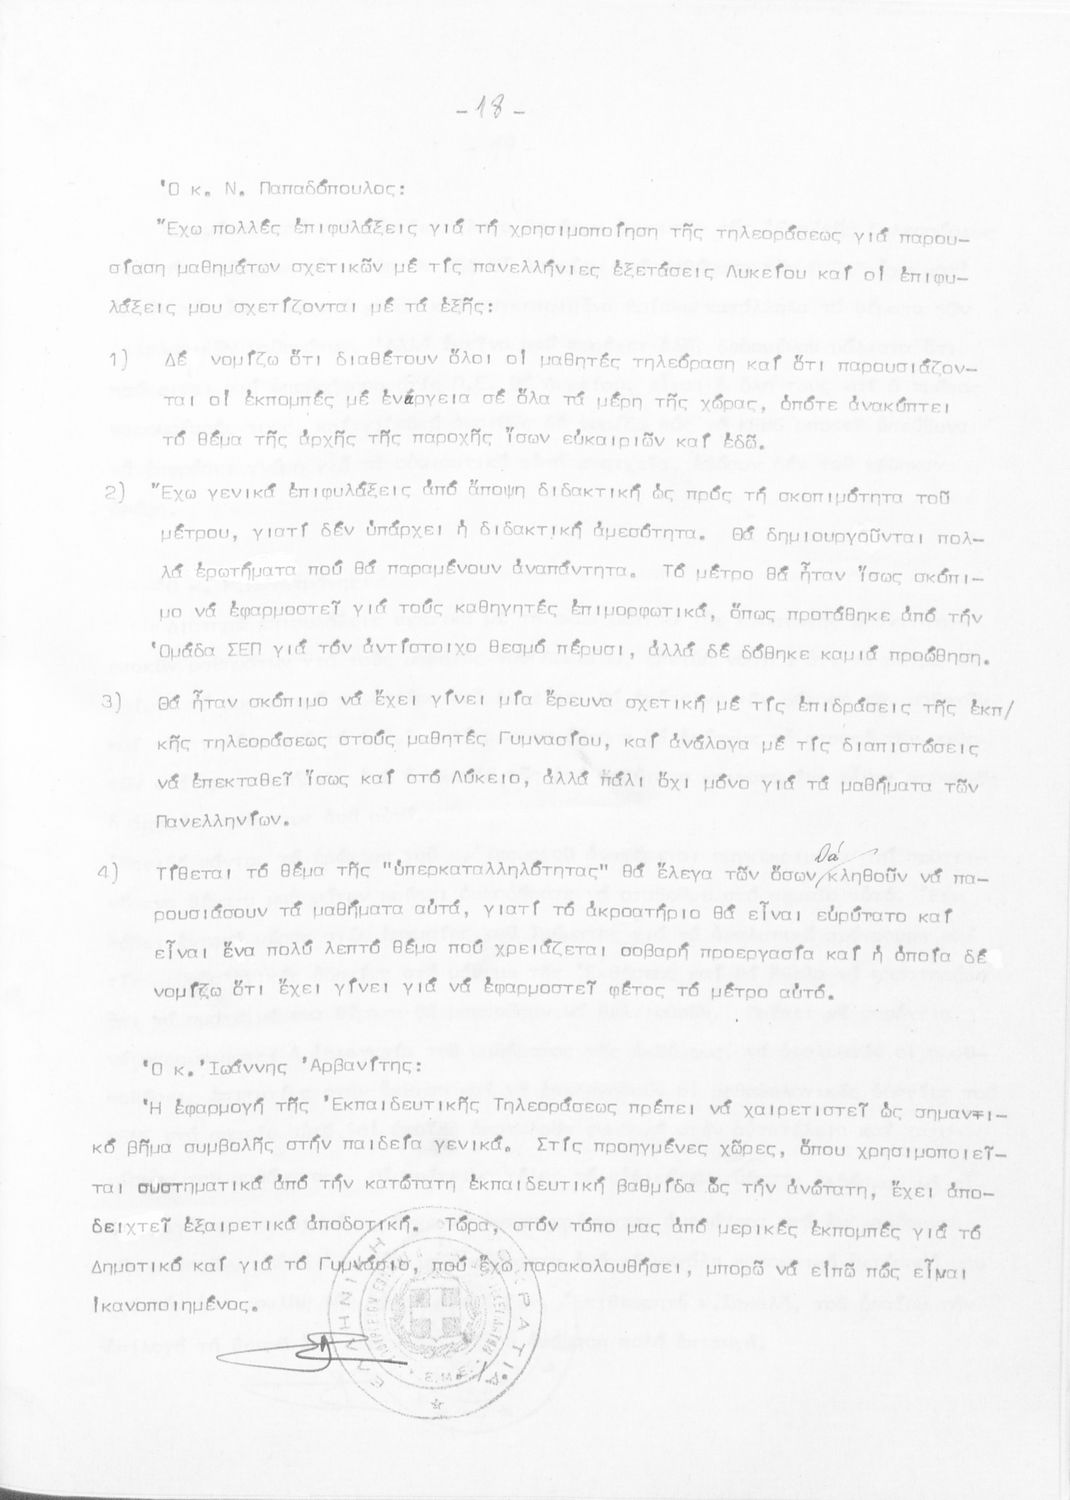 - 18 -
Ὁ κ. Ν. Παπαδόπουλος:
Ἔχω πολλές ἐπιφυλάξεις γιά τή χρησιμοποίηση τῆς τηλεοράσεως γιά παρου-
σίαση μαθημάτων σχετικῶν μέ τίς πανελλήνιες ἐξετάσεις Λυκείου καί οἱ ἐπιφυ-
λάξεις μου σχετίζονται μέ τά ἑξῆς:
1) Δέ νομίζω ὅτι διαθέτουν ὅλοι οἱ μαθητές τηλεόραση καί ὅτι παρουσιάζον-
ται οἱ ἐκπομπές μέ ἐνάργεια σέ ὅλα τά μέρη τῆς χώρας, ὁπότε ἀνακύπτει
τό θέμα τῆς ἀρχῆς τῆς παροχῆς ἴσων εὐκαιριῶν καί ἐδῶ.
2) Ἔχω γενικά ἐπιφυλάξεις ἀπό ἄποψη διδακτική ὡς πρός τή σκοπιμότητα τοῦ
μέτρου, γιατί δέν ὑπάρχει ἡ διδακτική ἀμεσότητα. Θά δημιουργοῦνται πολ-
λά ἐρωτήματα πού θά παραμένουν ἀναπάντητα. Τό μέτρο θά ἦταν ἴσως σκόπι-
μο νά ἐφαρμοστεῖ γιά τούς καθηγητές ἐπιμορφωτικά, ὅπως προτάθηκε ἀπό τήν
Ὁμάδα ΣΕΠ γιά τόν ἀντίστοιχο θεσμό πέρυσι, ἀλλά δέ δόθηκε καμιά προώθηση.
3) Θά ἦταν σκόπιμο νά ἔχει γίνει μία ἔρευνα σχετική μέ τίς ἐπιδράσεις τῆς ἐκπ/
κῆς τηλεοράσεως στούς μαθητές Γυμνασίου, καί ἀνάλογα μέ τίς διαπιστώσεις
νά ἐπεκταθεῖ ἴσως καί στό Λύκειο, ἀλλά πάλι ὄχι μόνο γιά τά μαθήματα τῶν
Πανελληνίων.
4) Τίθεται τό θέμα τῆς "ὑπερκαταλληλότητας" θά ἔλεγα τῶν ὅσων θά κληθοῦν νά πα-
ρουσιάσουν τά μαθήματα αὐτά, γιατί τό ἀκροατήριο θά εἶναι εὐρύτατο καί
εἶναι ἕνα πολύ λεπτό θέμα πού χρειάζεται σοβαρή προεργασία καί ἡ ὁποία δέ
νομίζω ὅτι ἔχει γίνει γιά νά ἐφαρμοστεῖ φέτος τό μέτρο αὐτό.
Ὁ κ. Ἰωάννης Ἀρβανίτης:
Ἡ ἐφαρμογή τῆς Ἐκπαιδευτικῆς Τηλεοράσεως πρέπει νά χαιρετιστεῖ ὡς σημαντι-
κό βῆμα συμβολῆς στήν παιδεία γενικά. Στίς προηγμένες χῶρες, ὅπου χρησιμοποιεῖ-
ται συστηματικά ἀπό τήν κατώτατη ἐκπαιδευτική βαθμίδα ὥς τήν ἀνώτατη, ἔχει ἀπο-
δειχτεῖ ἐξαιρετικά ἀποδοτική. Τώρα, στόν τόπο μας ἀπό μερικές ἐκπομπές γιά τό
Δημοτικό καί γιά τό Γυμνάσιο, πού ἔχω παρακολουθήσει, μπορῶ νά εἰπῶ πώς εἶμαι
ἱκανοποιημένος.